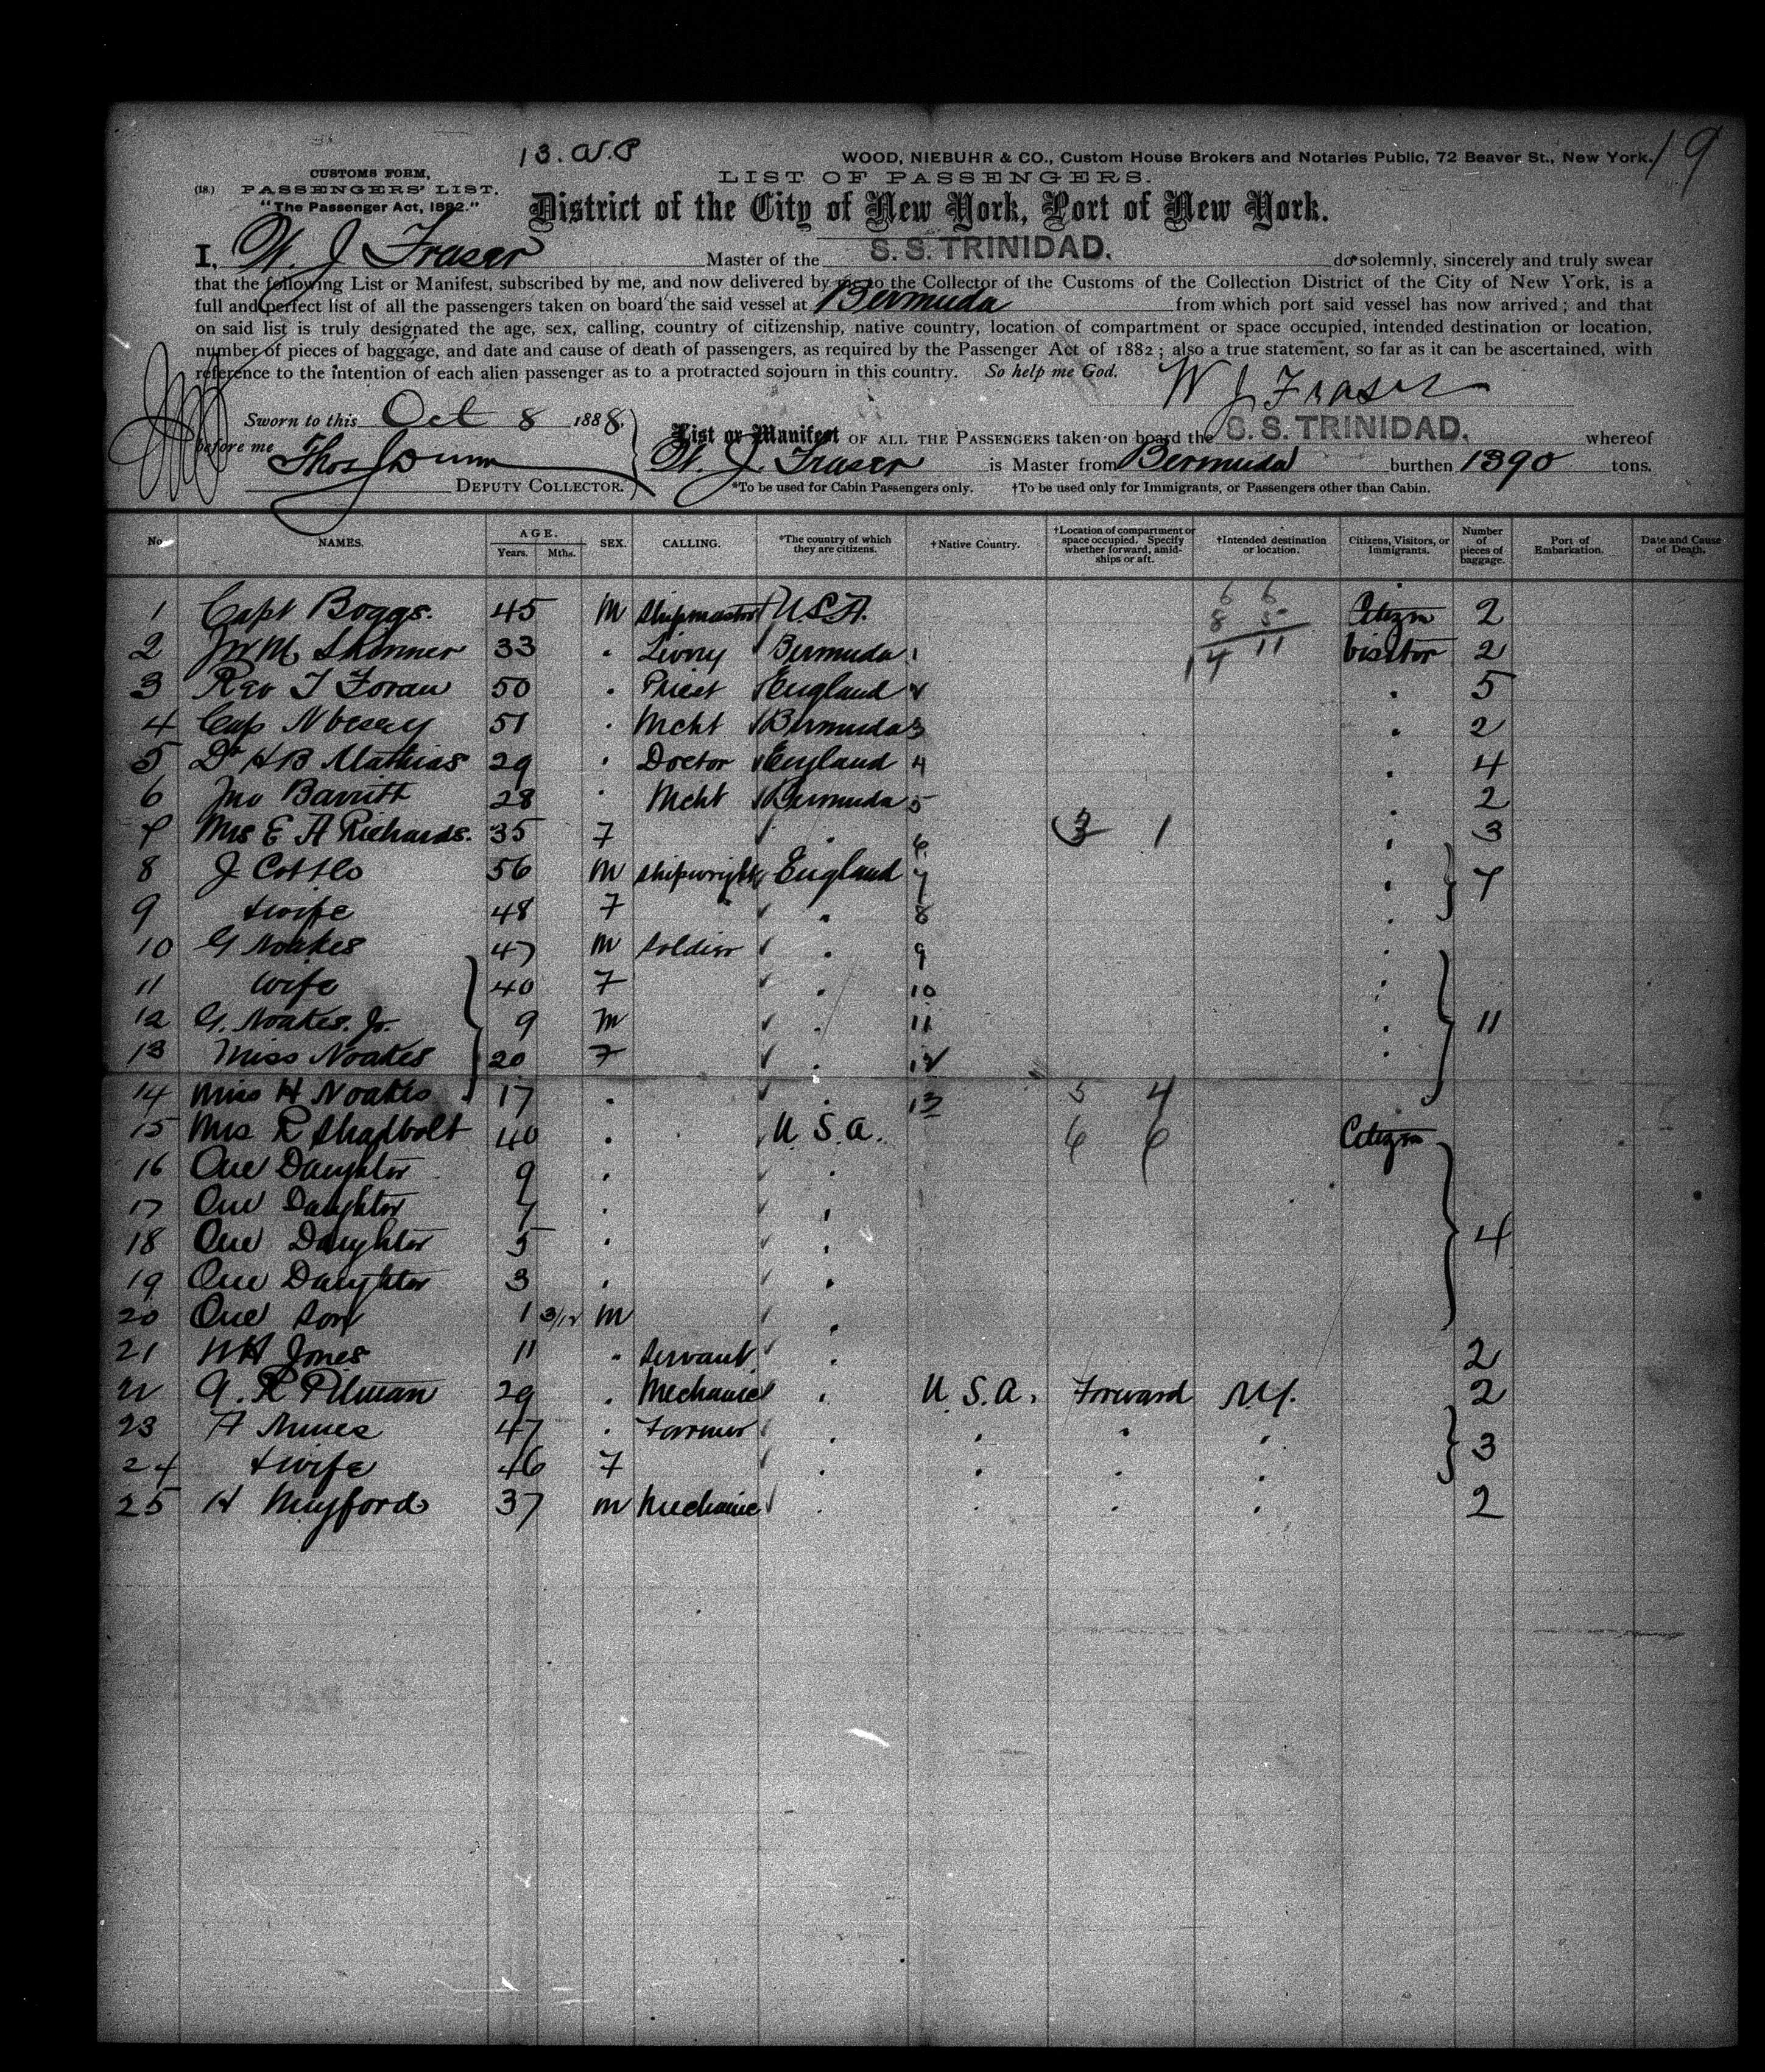 13. 19
WOOD, NIEBUHR & CO., Custom House Brokers and Notaries Public, 72 Beaver St., New York.
CUSTOMS FORM,
LIST OF PASSENGERS.
(18.) PASSENGERS' LIST.
"The Passenger Act, 1882."
District of the City of New York, Port of New York.
I, W. J Fraser Master of the S. S. TRINIDAD. do solemnly, sincerely and truly swear
that the following List or Manifest, subscribed by me, and now delivered by me to the Collector of the Customs of the Collection District of the City of New York, is a
full and perfect list of all the passengers taken on board the said vessel at Bermuda from which port said vessel has now arrived; and that
on said list is truly designated the age, sex, calling, country of citizenship, native country, location of compartment or space occupied, intended destination or location,
number of pieces of baggage, and date and cause of death of passengers, as required by the Passenger Act of 1882; also a true statement, so far as it can be ascertained, with
reference to the intention of each alien passenger as to a protracted sojourn in this country. So help me God.
W J Fraser
Sworn to this Oct 8 1888.
before me Thos Dunn
DEPUTY COLLECTOR.
List or Manifest OF ALL THE PASSENGERS taken on board the S. S. TRINIDAD. whereof
W. J. Fraser is Master from Bermuda burthen 1390 tons.
*To be used for Cabin Passengers only. †To be used only for Immigrants, or Passengers other than Cabin.
No. NAMES. AGE. Years. Mths. SEX. CALLING. *The country of which they are citizens. †Native Country. †Location of compartment or space occupied. Specify whether forward, amidships or aft. †Intended destination or location. Citizens, Visitors, or Immigrants. Number of pieces of baggage. Port of Embarkation. Date and Cause of Death.
6 6
1 Capt Boggs. 45 M Shipmaster U.S.A. 8 5 Citizen 2
2 Skinner 33 " Bermuda 1 14 11 Visitor 2
3 Rev T Foran 50 " Priest England 2 " 5
4 Cap 51 " Mcht Bermuda 3 " 2
5 Dr H B Mathias 29 " Doctor England 4 " 4
6 Jno Barritt 28 " Mcht Bermuda 5 2
7 Mrs E A Richards. 35 F " 6 3 1 " 3
8 J Cottle 56 M Shipwright England 7 " 7
9 & wife 48 F " 8 "
10 G Noakes 47 M Soldier " 9 "
11 Wife 40 F " 10 "
12 G. Noakes. Jr. 9 M " 11 " 11
13 Miss Noakes 20 F " 12 "
14 Miss H Noakes 17 " " 13 5 4
15 Mrs R Shadbolt 40 " U. S. A. 6 6 Citizen
16 One Daughter 9 " "
17 One Daughter 7 " "
18 One Daughter 5 " " 4
19 One Daughter 3 " "
20 One Son 1 3/12 M "
21 Jones 11 " Servant " 2
22 A. R Pitman 29 " Mechanic " U. S. A. Forward N.Y. 2
23 47 " Farmer " " " " 3
24 & wife 46 F " " " "
25 H Mayford 37 M Mechanic " " " " 2